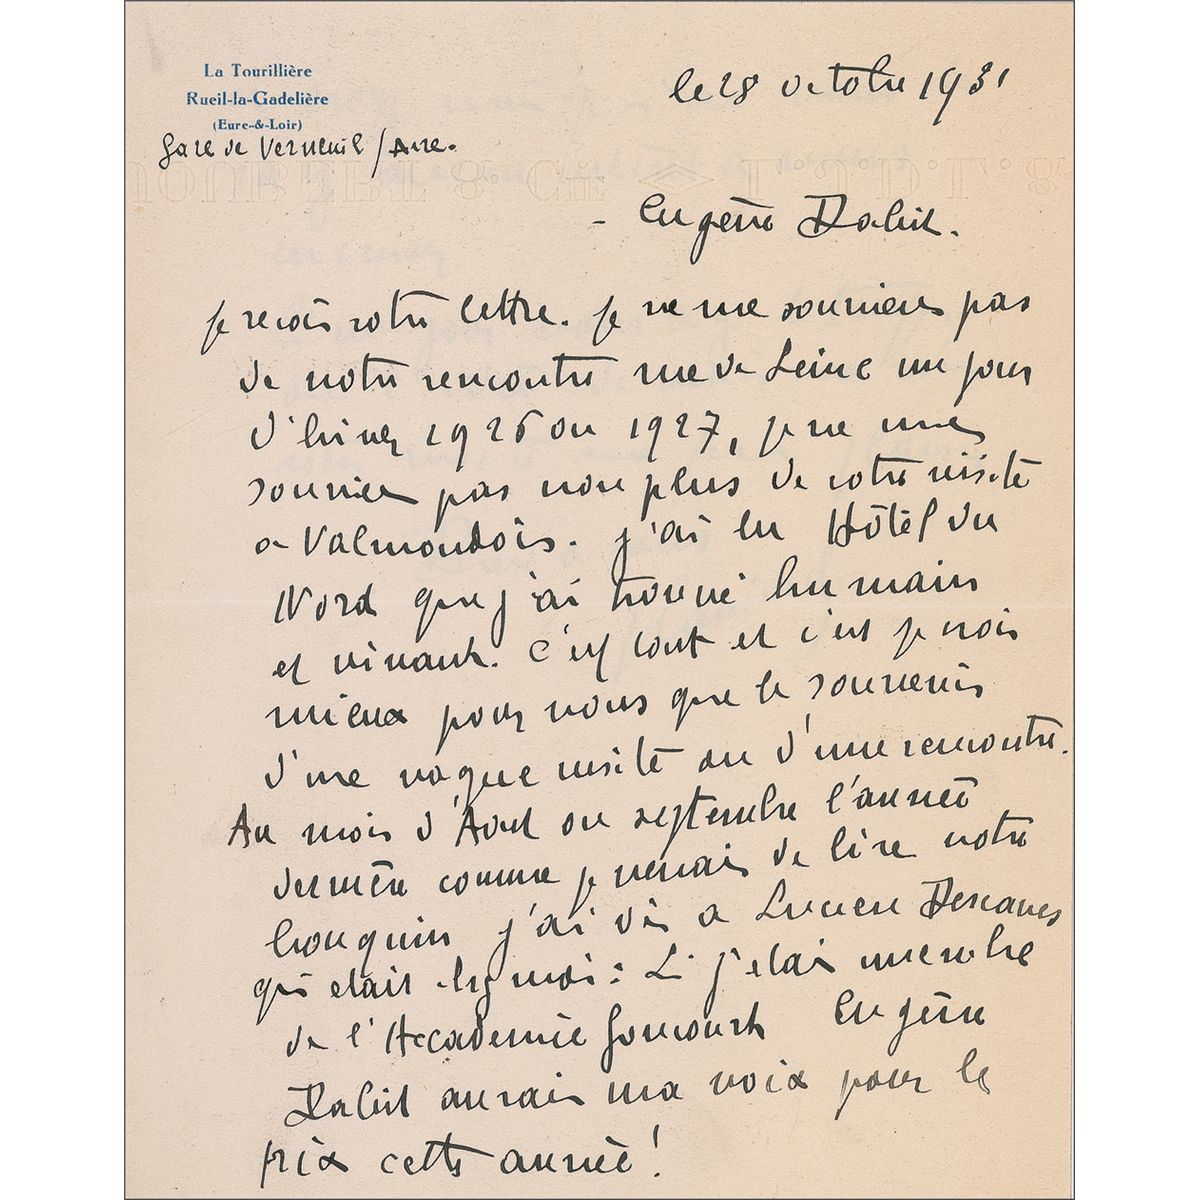 La Tourillière
Rueil-la-Gadelière
(Eure-&-Loir)
Gare de Verneuil / Avre.
le 28 octobre 1931
- Eugène Dabit.
je recois votre lettre. je ne me souviens pas
de notre rencontre rue de Seine un jour
d'hiver 1926 ou 1927, je ne me
souviens pas non plus de votre visite
a Valmondois. j'ai lu Hôtel du
Nord que j'ai trouvé humain
et vivant. c'est tout et c'est je crois
mieux pour vous que le souvenir
d'une vague visite ou d'une rencontre.
Au mois d'Aout ou septembre l'année
dernière comme je venais de lire votre
bouquin j'ai dis a Lucien Descaves
qui etait chez moi : Si j'etais membre
de l'Accademie Goncourt Eugène
Dabit aurais ma voix pour le
prix cette année !